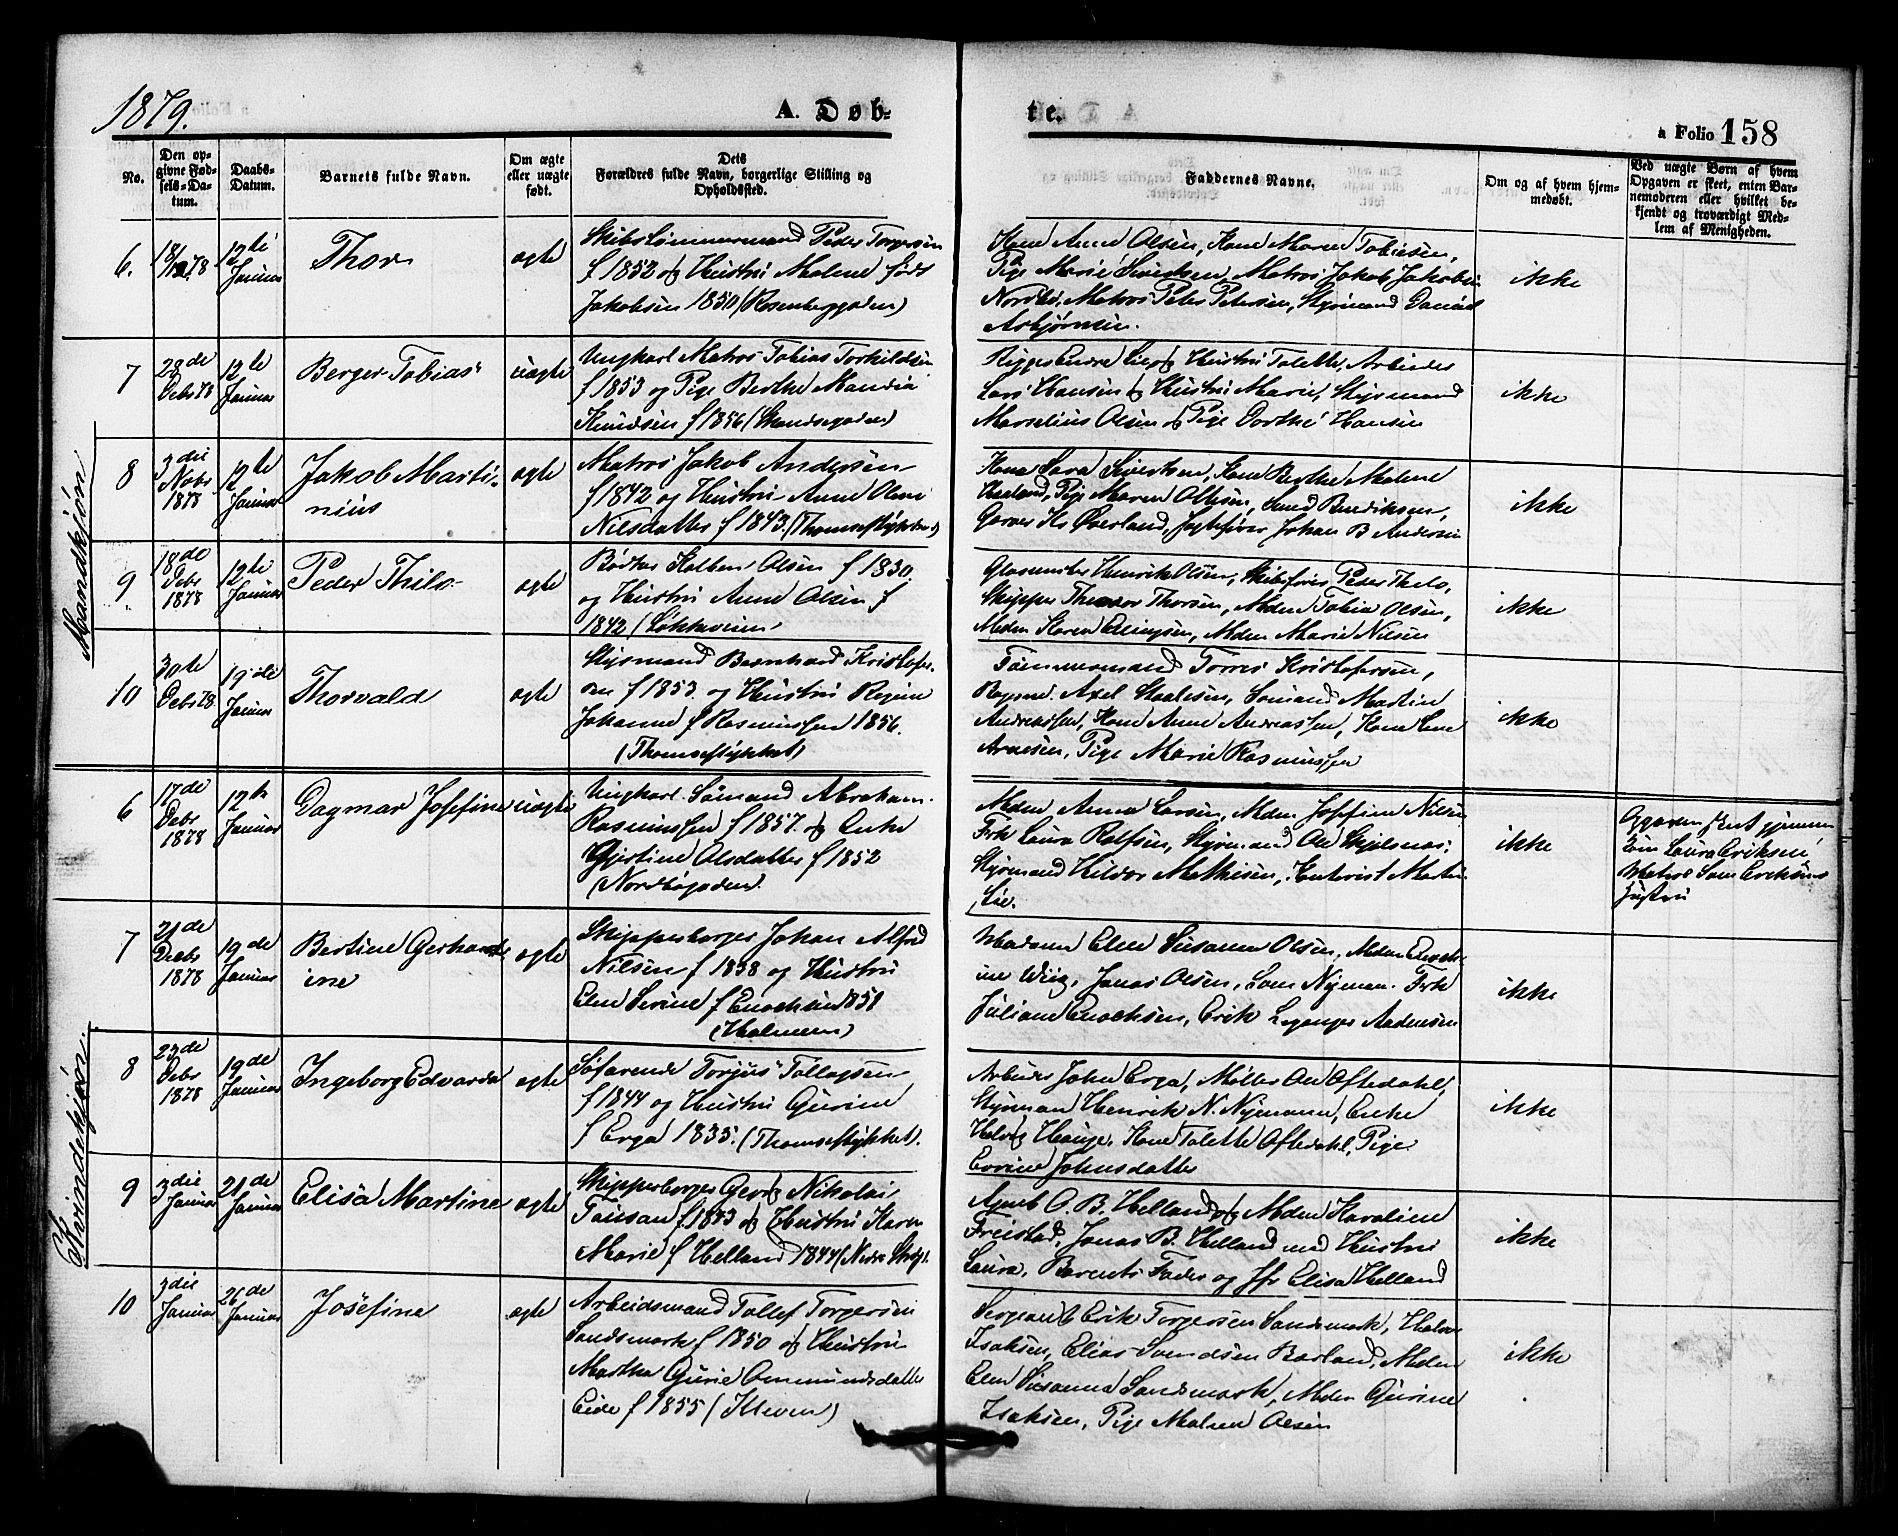 1879.
A. Døb-
te.
a Folio 158
No.
Den op-
givne Fød-
sels-Da-
tum.
Daabs-
Datum.
Barnets fulde Navn.
Om ægte
eller uægte
født.
Dets
Forældres fulde Navn, borgerlige Stilling og
Opholdssted.
Faddernes Navne.
Om og af hvem hjem-
medøbt.
Ved uægte Børn af hvem
Opgaven er skeet, enten Bar-
nemoderen eller hvilket be-
kjendt og troværdigt Med-
lem af Menigheden.
Mandkjøn
6.
12te
Januar
Thor
ægte
Skibstømmermand Peder Torgersen
f 1852 og Hustru Malene født
Jakobsen 1850 (Rosenberggaden)
Kone Anne Olsen, Kone Maren Tobiesen,
Pige Marie Sivertsen, Matros Jakob Jakobsen
Nordbø, Matros Peter Petersen, Styrmand Daniel
Asbjørnsen.
ikke
7
28de
Debr 78
12te
Januar
Berger Tobias
uægte
Ungkarl Matros Tobias Torkildsen
f 1853 og Pige Berthe Mandia
Knudsen f 1856 (Strandsgaden)
Rigger Endre Lie og Hustru Talette, Arbeider
Lars Hansen og Hustru Marie, Styrmand
Marselius Olsen og Pige Dorthe Hansen
ikke
8
3die
Nobr
1878
12te
Januar
Jakob Marti-
nius
ægte
Matros Jakob Andersen
f 1842 og Hustru Anne Oline
Nilsdatter f 1843. (Thomsestykket)
Kone Sara Sivertsen, Kone Berthe Malene
Haaland, Pige Maren Olsen, Svend Bendiksen,
Garver Ks Øverland, Jagtefører Johan B Andersen
ikke
9
18de
Debr
1878
12te
Januar
Peder Thilo
ægte
Bødker Kolben Olsen f 1830
og Hustru Anne Olsen f
1842 (Løkkeveien)
Glasmester Henrik Olsen, Skibsfører Peder Thilo,
Skipper Theodor Thorsen, Mdm Tobia Olsen,
Mdm Karen Ellingsen, Mdm Marie Nilsen
ikke
10
30te
Debr 78
19de
Januar
Thorvald
ægte
Styrmand Bernhard Kristofer-
sen f 1853 og Hustru Regine
Johanne f Rasmussen 1856.
(Thomsestykket)
Tømmermand Torres Kristofersen,
Axel Staalesen, Sømand Martin
Andreassen, Kone Anne Andreassen, Kone Lene
Arnesen, Pige Marie Rasmussen
ikke
Kvindekjøn
6
17de
Debr
1878
12te
Januar
Dagmar Josefine
uægte
Ungkarl Sømand Abraham
Rasmussen f 1857. og Enke
Gjertine Olsdatter f 1852
(Nordbøgaden)
Mdm Anna Larsen, Mdm Josefine Nilsen
Frk Laura Rolfsen, Styrmand Ole Skjelsnes,
Styrmand Hildor Mathisen, Kontorist Martin
Lie.
ikke
Opgaven skeet gjennem
Laura Eriksen,
Matros Sven Eriksens
Hustru
7
21de
Debr
1878
19de
Januar
Bertine Gerhard-
ine
ægte
Skipperborger Johan Alfred
Nilsen f 1838 og Hustru
Elen Serine f Enochsen 1851
(Holmen)
Madam Elen Susanna Olsen, Mdm Enoch-
ine Wiig, Jonas Olsen, Sven Nyman. Frk
Juliane Enochsen, Erik Leganger Andersen
ikke
8
23de
Debr
1878
19de
Januar
Ingeborg Edvarda
ægte
Søfarende Torjus Tollagsen
f 1844 og Hustru Gurine
f Erga 1835. (Thomsestykket).
Arbeider John Erga, Møller Ole Oftedahl,
Styrman Henrik N. Nyemann, Enke
Helvig Hauge, Kone Talette Oftedahl, Pige
Johnsdatter
ikke
9
3die
Januar
21de
Januar
Elisa Martine
ægte
Skipperborger Georg Nikolai
Tausan f 1843 og Hustru Karen
Marie f Helland 1844 (Nedre Strdgt.
Agent O. B. Helland og Mdm Karoline
Freistad, Jonas B. Helland med Hustru
Laura, Barnets Fader og Jfr Elisa Helland
ikke
10
3die
Januar
26de
Januar
Josefine
ægte
Arbeidsmand Tollef Torgersen
Sandsmark f 1850 og Hustru
Martha Gurie Ommundsdatter
Eide f 1855 (Jelleveien)
Sergeant Erik Torgersen Sandsmark, Halvor
Isaksen, Elias Svendsen Barland, Mdm
Elen Susanna Sandsmark, Mdm Gurine
Isaksen, Pige Malene Olsen
ikke